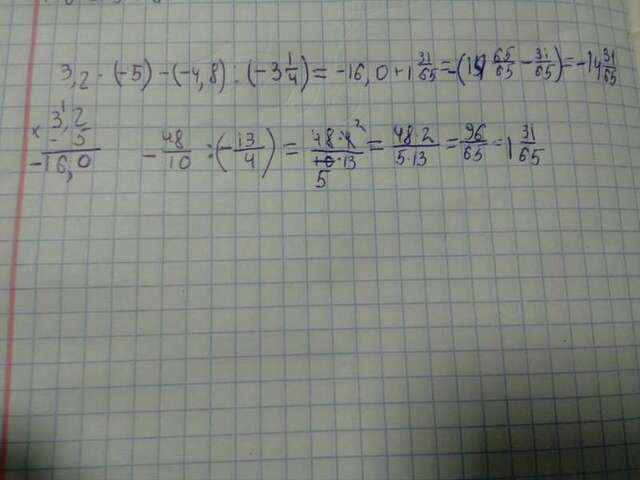 3,2 · (-5) - (-4,8) : (-3 1/4) = -16,0 + 1 31/65 = -(14 65/65 - 31/65) = -14 31/65
× 3,2
- 5
-16,0
- 48/10 : (- 13/4) = 48·4 2/10·13 5 = 48·2/5·13 = 96/65 = 1 31/65